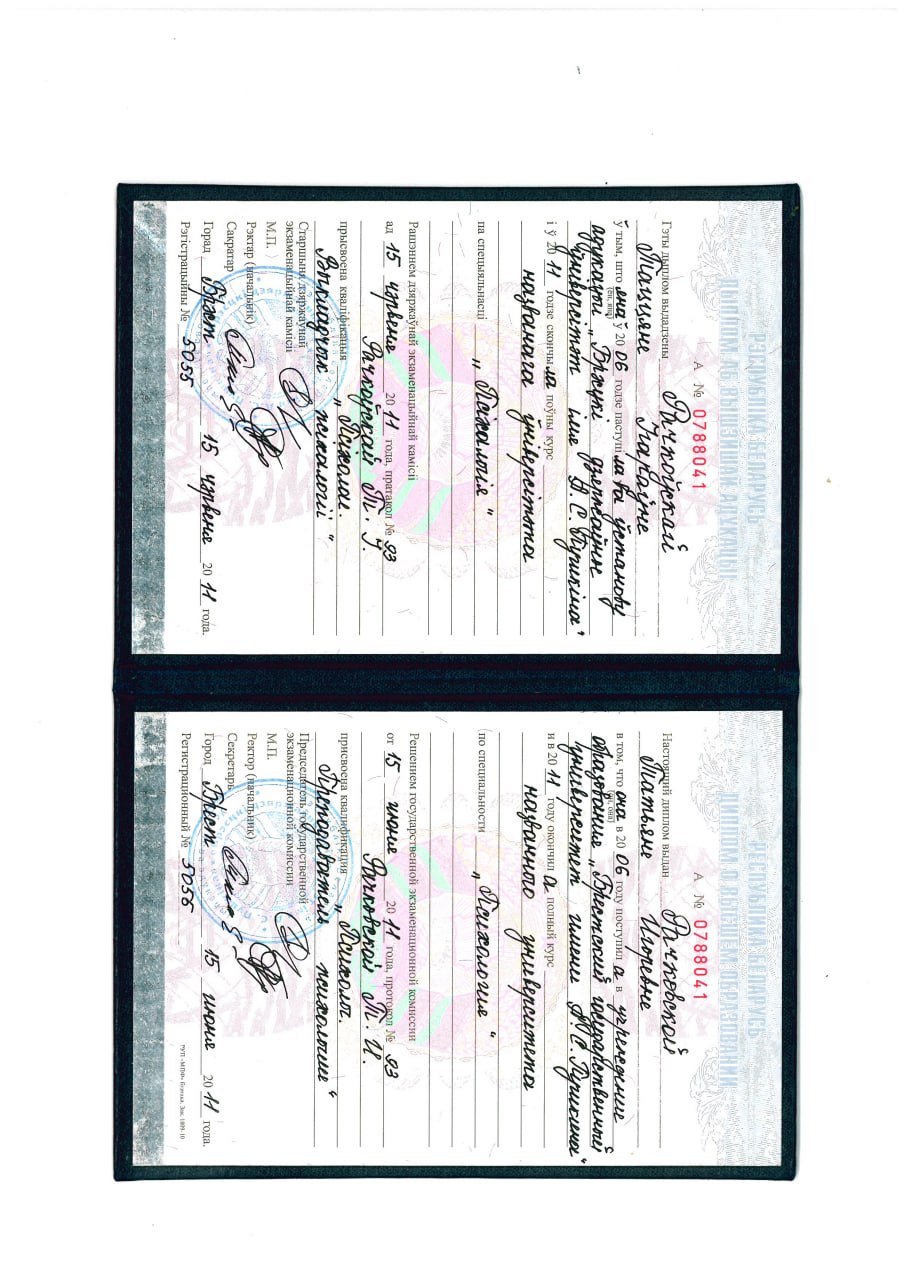 РЭСПУБЛІКА БЕЛАРУСЬ
ДЫПЛОМ АБ ВЫШЭЙШАЙ АДУКАЦЫІ
А № 0788041
Гэты дыплом выдадзены Рачкоўскай
Таццяне Ігараўне
ў тым, што яна ў 2006 годзе паступіла ва ўстанову
(ён, яна)
адукацыі „Брэсцкі дзяржаўны
ўніверсітэт імя А.С. Пушкіна"
і ў 2011 годзе скончыла поўны курс
названага ўніверсітэта
па спецыяльнасці
„Псіхалогія"
Рашэннем дзяржаўнай экзаменацыйнай камісіі
ад 15 чэрвеня 2011 года, пратакол № 93
Рачкоўскай Т. І.
прысвоена кваліфікацыя „Псіхолаг.
Выкладчык псіхалогіі"
Старшыня дзяржаўнай
экзаменацыйнай камісіі
М.П.
Рэктар (начальнік)
Сакратар
Горад Брэст 15 чэрвеня 2011 года.
Рэгістрацыйны № 5055
РЕСПУБЛИКА БЕЛАРУСЬ
ДИПЛОМ О ВЫСШЕМ ОБРАЗОВАНИИ
А № 0788041
Настоящий диплом выдан Рачковской
Татьяне Игоревне
в том, что она в 2006 году поступила в учреждение
(он, она)
образования „Брестский государственный
университет имени А.С. Пушкина"
и в 2011 году окончила полный курс
названного университета
по специальности
„Психология"
Решением государственной экзаменационной комиссии
от 15 июня 2011 года, протокол № 93
Рачковской Т. И.
присвоена квалификация „Психолог.
Преподаватель психологии"
Председатель государственной
экзаменационной комиссии
М.П.
Ректор (начальник)
Секретарь
Город Брест 15 июня 2011 года.
Регистрационный № 5055